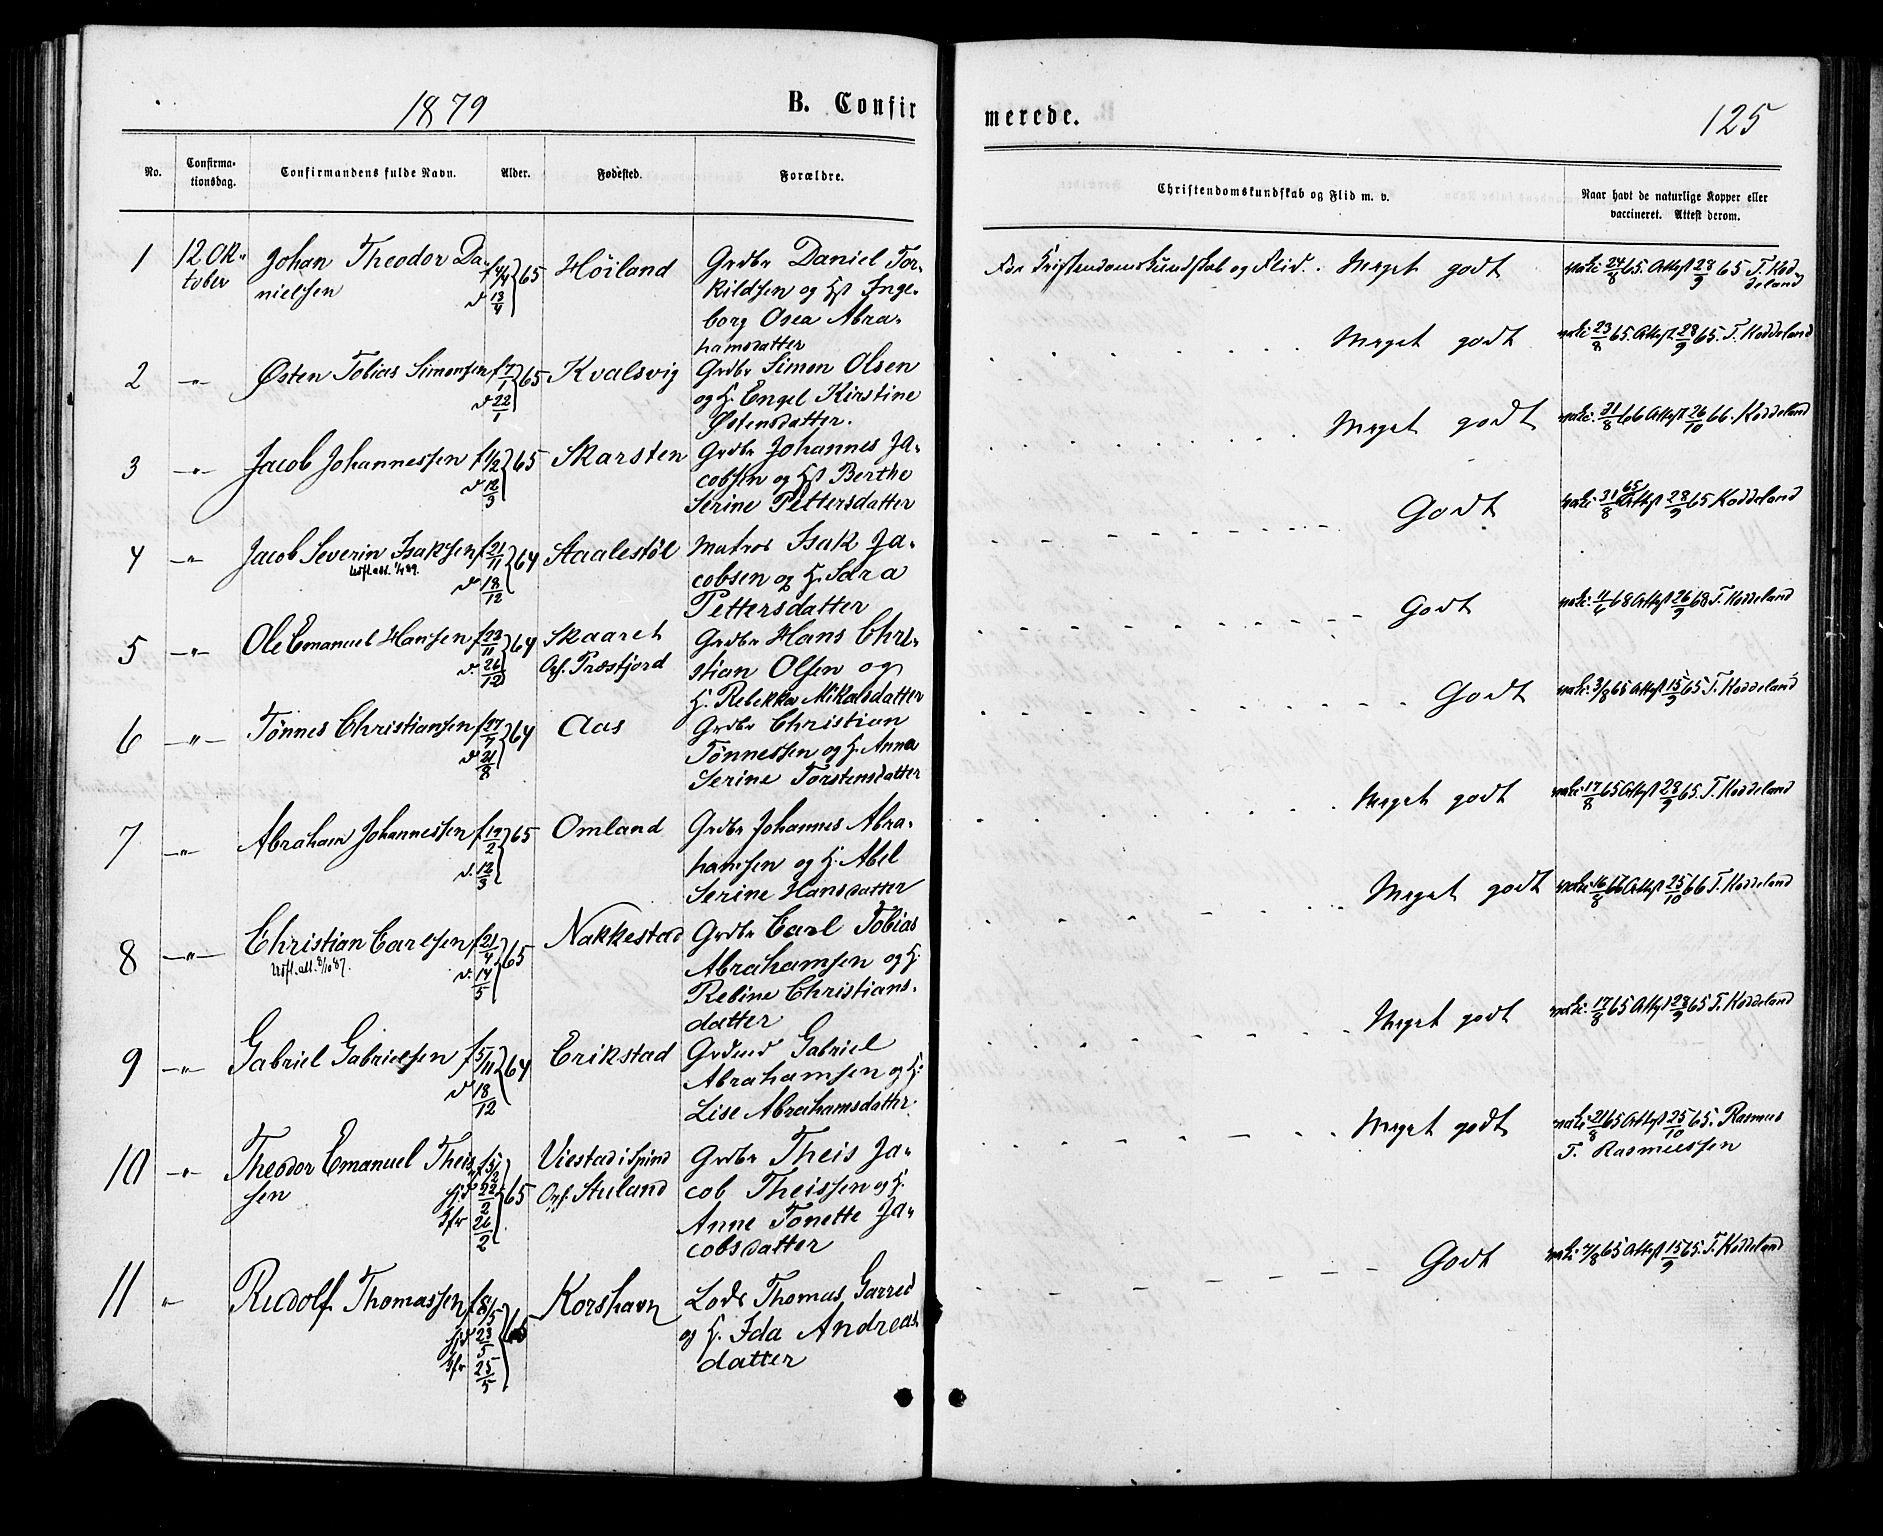 1879
B. Confir
merede.
125
No.
Confirma-
tionsdag.
Confirmandens fulde Navn.
Alder.
Fødested.
Forældre.
Christendomskundskab og Flid m. v.
Naar havt de naturlige Kopper eller
vaccineret. Attest derom.
1 12. Ok- Johan Theodor Da- f 4/4 65 Höiland Grdbr Daniel Tor-
tober nielsen d 13/4 kildsen og Hst Inge-
borg Osea Abra-
hamsdatter
For Kristendomskundskab og Flid. Meget godt vakc 24/8 65. Attest 28/9 65 T. Kod-
deland
2 " Østen Tobias Simonsen f 7/1 65 Kvalsvig Grdbr Simon Olsen
d 22/1 og H. Engel Kirstine
Østensdatter.
Meget godt vakc 23/8 65. Attest 28/9 65. T. Koddeland
3 " Jacob Johannessen f 1/2 65 Skarsten Grdbr Johannes Ja-
d 12/3 cobsen og Hst Berthe
Serine Pettersdatter
Meget godt vakc. 31/8 66 Attest 26/10 66. Koddeland
4 " Jacob Severin Isaksen f 21/11 64 Staalestöl Matros Isak Ja-
Udfl. att. 1/4 89. d 18/12 cobsen og H. Sara
Pettersdatter
Godt vakc 31/8 65 Attest 28/9 65 Koddeland
5 " Ole Emanuel Hansen f 23/11 64 Skaaret Grdbr Hans Chri-
d. 26/12 Opf. Præstfjord stian Olsen og
H. Rebekka Mikalsdatter
Godt vakc. 4/6 68 Attest 26/9 68 T. Koddeland
6 " Tønnes Christiansen f 27/7 64 Aas Grdbr Christian
d 21/8 Tønnessen og H. Anna
Serine Torstensdatter
Godt vakc. 3/8 65 Attest 15/9 65 T. Koddeland
7 " Abraham Johannessen f 19/2 65 Omland Grdbr Johannes Abra-
d. 12/3 hamsen og H. Abel
Serine Hansdatter
Meget godt vakc 17/8 65 Attest 28/9 65. T. Koddeland
8 " Christian Carlsen f 21/4 65 Nakkestad Grdbr Carl Tobias
Udfl. att. 8/10 87. d. 14/5 Abrahamsen og H.
Rebine Christians-
datter
Meget godt vakc 16/8 66 Attest 25/10 66 T. Koddeland
9 " Gabriel Gabrielsen f 5/11 64 Erikstad Gabriel
d 18/12 Abrahamsen og H.
Lise Abrahamsdatter.
Meget godt vakc. 17/8 65 Attest 28/9 65 T. Koddeland
10 " Theodor Emanuel Theis- f 5/2 65 Viestad i Spind Grdbr Theis Ja-
sen hjd 22/2 Opf. Stuland cob Theissen og H.
Ifr 26/2 Anne Tonette Ja-
cobsdatter
Meget godt vakc 21/8 65 Attest 25/10 65. Rasmus
T. Rasmussen
11 " Rudolf Thomassen f 8/5 65 Korshavn Lods Thomas Garred
hjd 23/5 og H. Ida Andreas-
Ifr 25/5 datter
Godt vakc 4/8 65 Attest 15/9 65. T. Koddeland